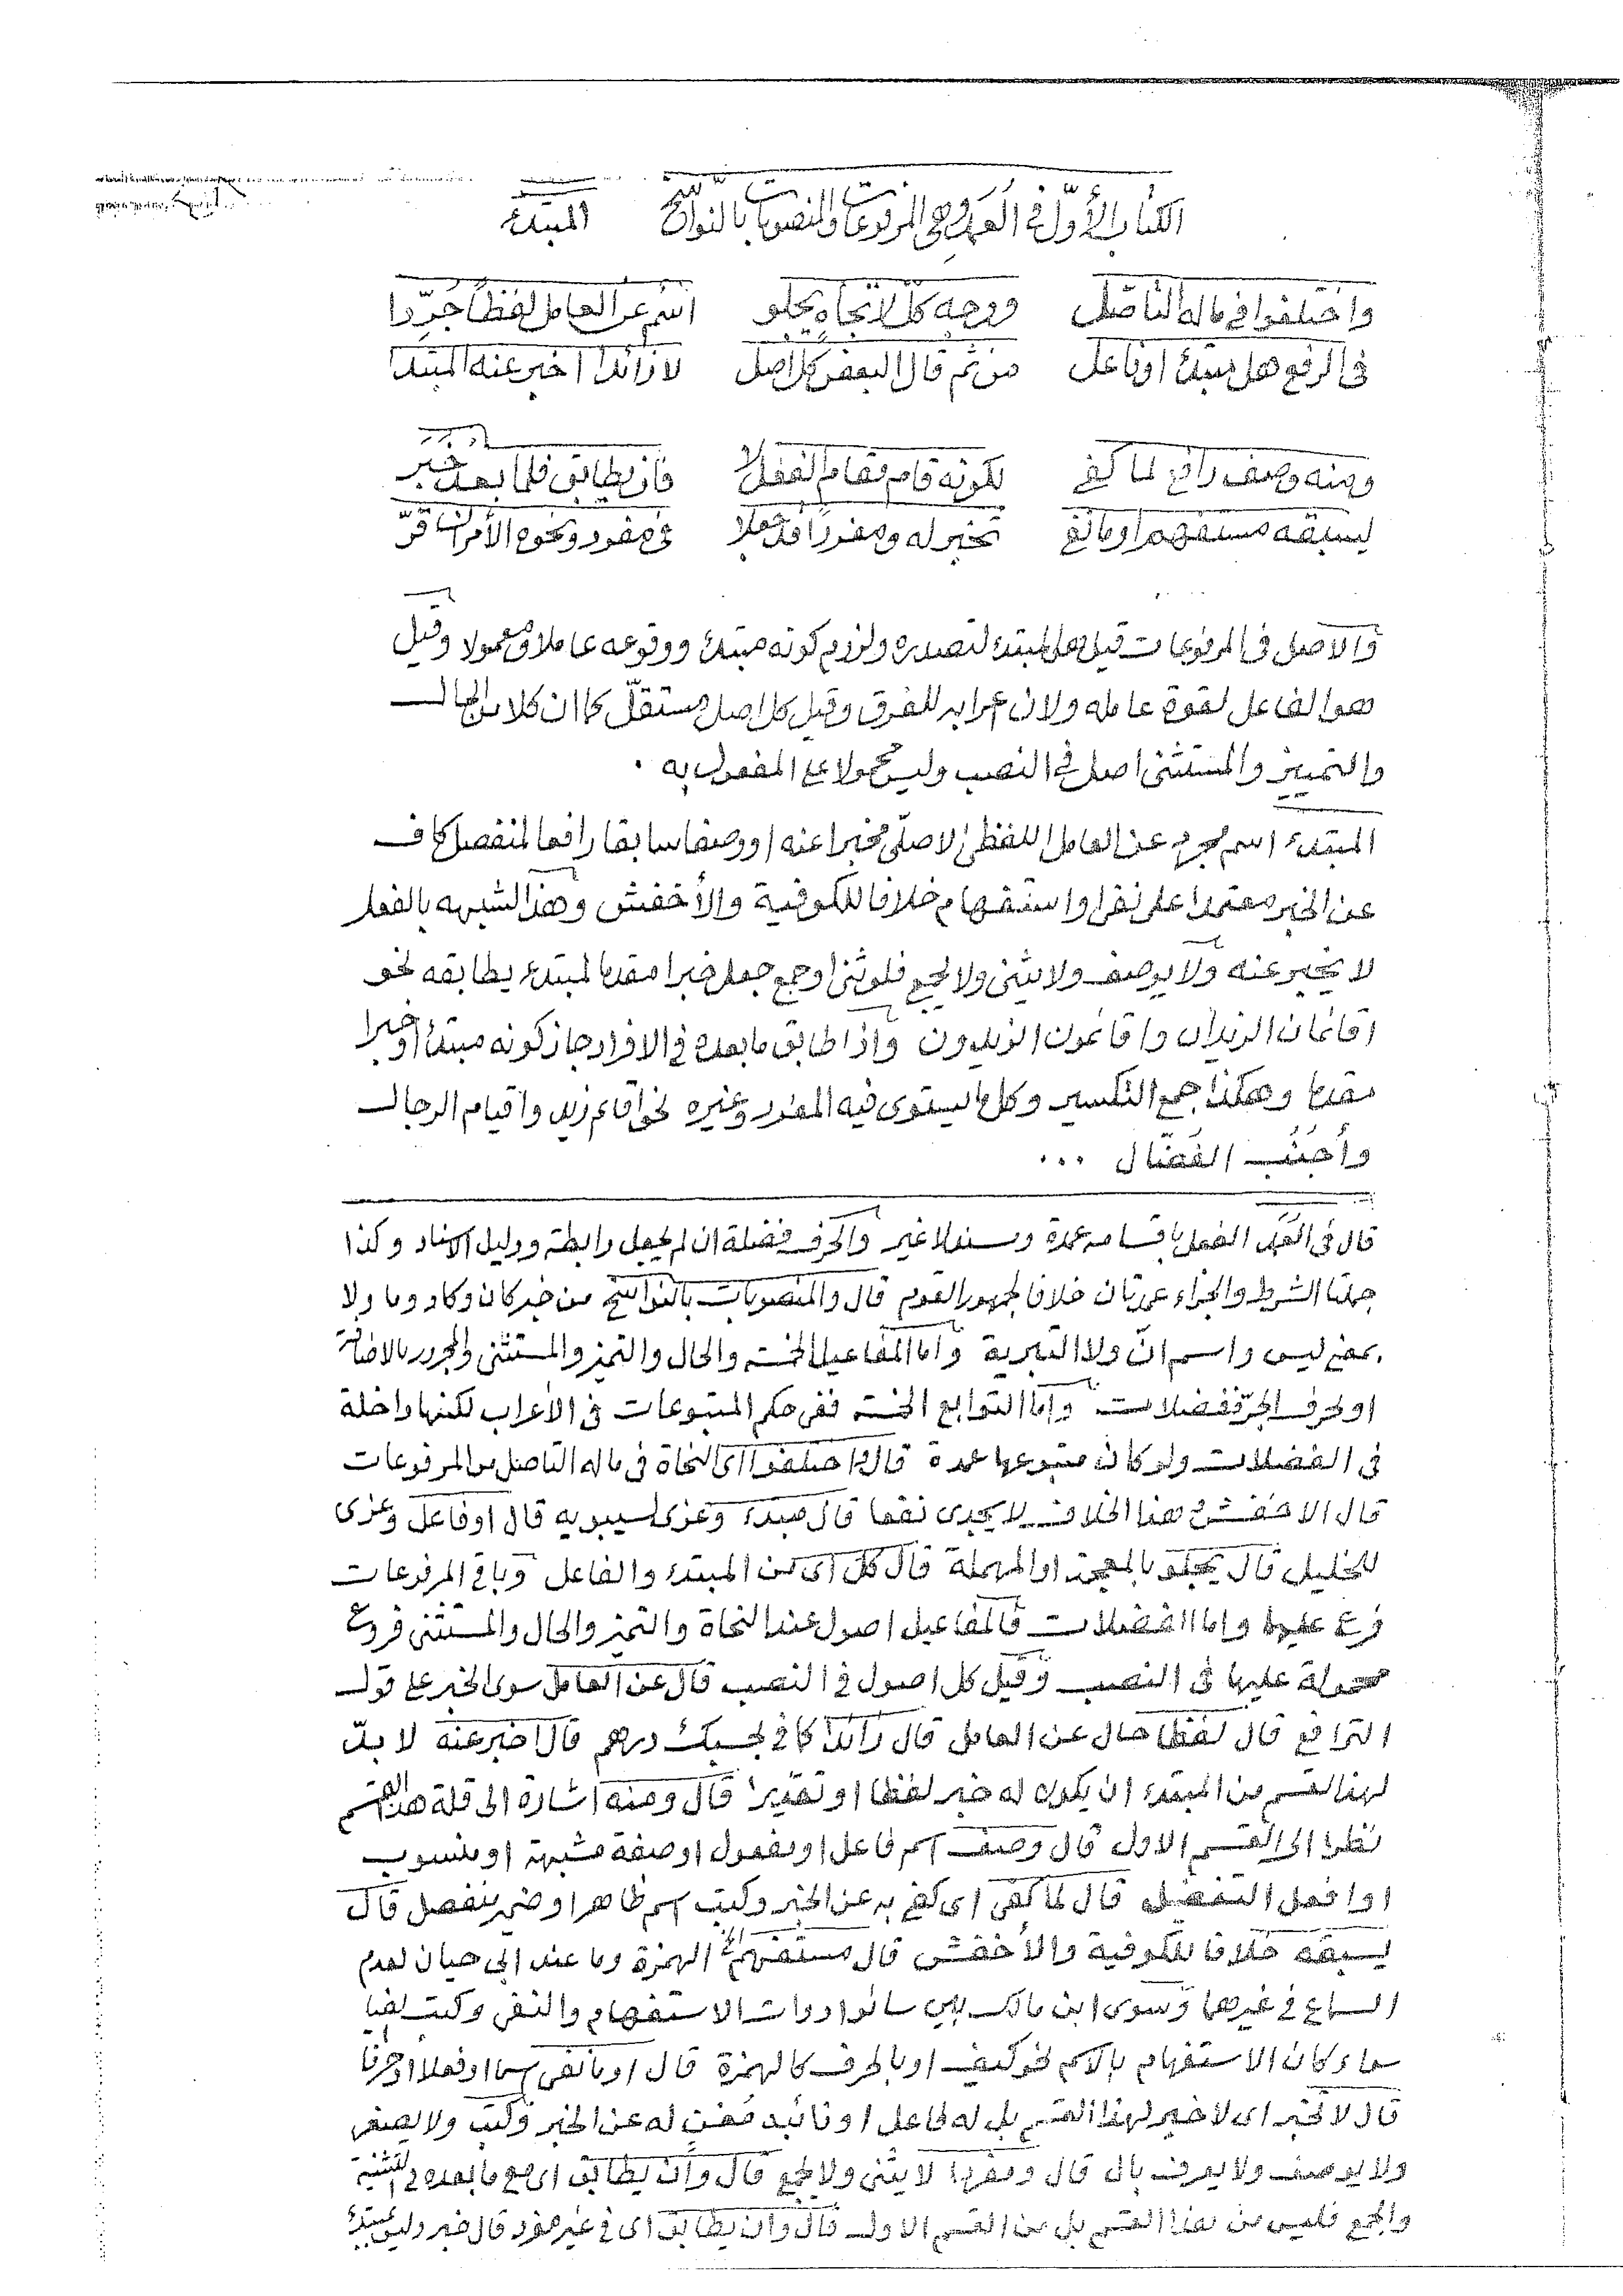 الكتاب الأوّل في العمد وهي المرفوعات والمنصوبات بالنواسخ المبتدء
واختلفوا في ماله التأصّل ووجه كلّ لاتجاهٍ يجلو اسم عن العامل لفظاً جُرّدا
في الرفع هل مبتدء او فاعل من ثم قال البعض كل اصل لا زائدا اخبر عنه المبتدا
ومنه وصف رافع لما كفى لكونه قام مقام الفعل لا فان يطابق فلما بعد خبر
يسبقه مستفهم او ما نفى تخبر له ومفرداً قد جعلا في مفرد ونحوه الأمران قرّ
والاصل في المرفوعات قيل هل المبتدء لتصدره ولزوم كونه مبتدء ووقوعه عاملا ومعمولا وقيل
هو الفاعل لقوة عامله ولان اعرابه للفرق وقيل كل اصل مستقلّ كما ان كلا من الحال
والتمييز والمستثنى اصل في النصب وليس محمولا على المفعول به .
المبتدء اسم مجرد عن العامل اللفظى الاصلّى مخبرا عنه او وصفا سابقا رافعا لمنفصل كاف
عن الخبر معتمدا على نفى او استفهام خلافا للكوفية والأخفش وهذا لشبهه بالفعل
لا يخبر عنه ولا يوصف ولا يثنى ولا يجمع فلو ثنى او جمع جعل خبرا مقدما لمبتدء يطابقه نحو
اقائمان الزيدان واقائمون الزيدون واذا طابق ما بعده في الافراد جاز كونه مبتدء او خبرا
مقدما وهكذا جمع التكسير وكل ما يستوى فيه المفرد وغيره نحو اقائم زيد واقيام الرجال
وأجُنُب الفُضّال ...
قال في العمد الفعل باقسامه عمدة ومسند لا غير والحرف فضلة ان لم يجعل رابطة ودليل الاسناد وكذا
جملتا الشرط والجزاء عمدتان خلافا لجمهور القوم قال والمنصوبات بالنواسخ من خبر كان وكاد وما ولا
بمعنى ليس واسم انّ ولا التبرية واما المفاعيل الخمسة والحال والتميز والمستثنى والمجرور بالاضافة
او بحرف الجرّ ففضلات واما التوابع الخمسة ففى حكم المتبوعات في الأعراب لكنها داخلة
في الفضلات ولو كان متبوعها عمدة قال واختلفوا اى النحاة في ماله التأصل من المرفوعات
قال الاخفش هذا الخلاف لا يجدى نفعا قال مبتدء وعزى لسيبويه قال او فاعل وعزى
للخليل قال يجلو بالمعجمة او المهملة قال كل اى من المبتدء والفاعل وباقي المرفوعات
فرع عليهما واما الفضلات فالمفاعيل اصول عند النحاة والتميز والحال والمستثنى فروع
محمولة عليها في النصب وقيل كل اصول في النصب قال عن العامل سوى الخبر على قول
الترافع قال لفظا حال عن العامل قال زائدا كما في بحسبك درهم قال اخبر عنه لا بدّ
لهذا القسم من المبتدء ان يكون له خبر لفظا او تقديرا قال ومنه اشارة الى قلة هذا القسم
نظرا الى القسم الاول قال وصف اسم فاعل او مفعول او صفة مشبهة او منسوب
او افعل التفضيل قال لما كفى اى كفى به عن الخبر وكتب اسم ظاهرا او ضمير منفصل قال
يسبقه خلافا للكوفية والأخفش قال مستفهم الخ الهمزة وما عند ابى حيان لعدم
السماع في غيرهما وسوى ابن مالك بين سائر ادوات الاستفهام والنفى وكتب ايضا
سواء كان الاستفهام بالاسم نحو كيف او بالحرف كالهمزة قال او ما نفى اسما او فعلا او حرفا
قال لا تخبر اى لا خبر لهذا القسم بل له فاعل او نائبه مُغنٍ له عن الخبر وكتب ولا يصغر
ولا يوصف ولا يعرف بال قال ومفردا لا يثنى ولا يجمع قال وان يطابق اى مع ما بعده في التثنية
والجمع فليس من هذا القسم بل من القسم الاول قال وان يطابق اى في غير مفرد قال خبر وليس بمبتدء